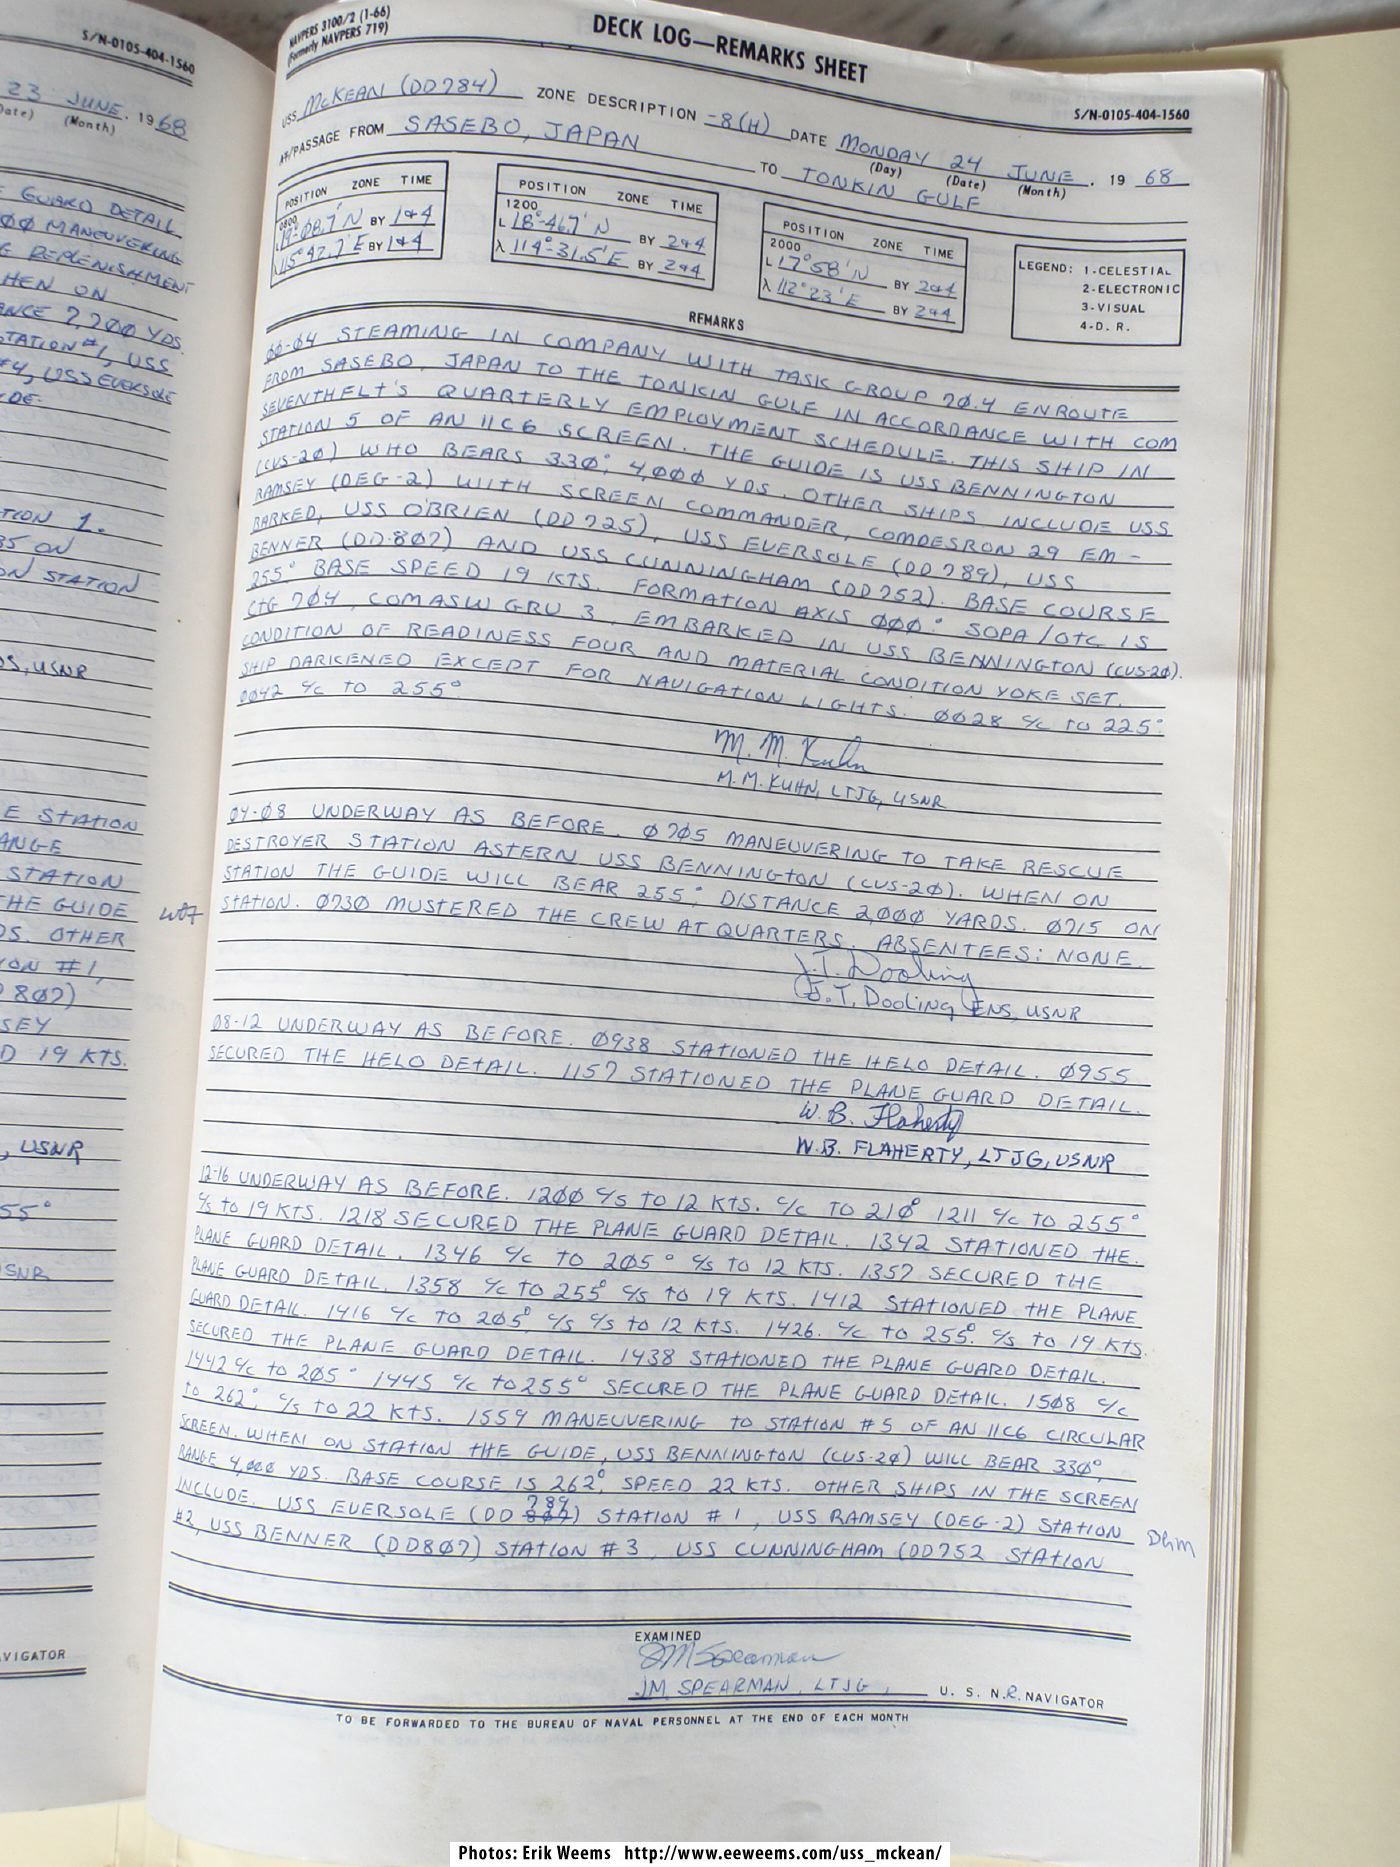 S/N-0105-404-1560
23 JUNE. 1968
(Date) (Month)
GUARD DETAIL
00 MANEUVERING
REPLENISHMENT
HEN ON
ANCE 2,200 YDS.
STATION #1, USS
#4, USS EVERSOLE
DE.
TION 1.
35 ON
ON STATION
S, USNR
E STATION
ANGE
STATION
THE GUIDE
DS. OTHER
ION #1,
807)
SEY
D 19 KTS.
, USNR
55°
SNR
AVIGATOR
NAVPERS 3100/2 (1-66)
(Formerly NAVPERS 719)
DECK LOG—REMARKS SHEET
S/N-0105-404-1560
USS McKEAN (DD784) ZONE DESCRIPTION -8(H) DATE MONDAY 24 JUNE. 19 68
(Day) (Date) (Month)
AT/PASSAGE FROM SASEBO, JAPAN TO TONKIN GULF
POSITION ZONE TIME
0800
L 19°-08.7'N BY 1&4
λ 115°42.7'E BY 1&4
POSITION ZONE TIME
1200
L 18°-46.7'N BY 2&4
λ 114°-31.5'E BY 2&4
POSITION ZONE TIME
2000
L 17°58'N BY 2&4
λ 112°23'E BY 2&4
LEGEND: 1-CELESTIAL
2-ELECTRONIC
3-VISUAL
4-D. R.
REMARKS
00-04 STEAMING IN COMPANY WITH TASK GROUP 70.4 ENROUTE
FROM SASEBO, JAPAN TO THE TONKIN GULF IN ACCORDANCE WITH COM
SEVENTHFLT'S QUARTERLY EMPLOYMENT SCHEDULE. THIS SHIP IN
STATION 5 OF AN 11C6 SCREEN. THE GUIDE IS USS BENNINGTON
(CVS-20) WHO BEARS 330°, 4,000 YDS. OTHER SHIPS INCLUDE USS
RAMSEY (DEG-2) WITH SCREEN COMMANDER, COMDESRON 29 EM-
BARKED, USS O'BRIEN (DD725), USS EVERSOLE (DD789), USS
BENNER (DD-807) AND USS CUNNINGHAM (DD752). BASE COURSE
255° BASE SPEED 19 KTS. FORMATION AXIS 000°. SOPA/OTC IS
CTG 704, COMASWGRU 3, EMBARKED IN USS BENNINGTON (CVS-20).
CONDITION OF READINESS FOUR AND MATERIAL CONDITION YOKE SET.
SHIP DARKENED EXCEPT FOR NAVIGATION LIGHTS. 0028 C/C TO 225°.
0042 C/C TO 255°
M. M. Kuhn
M.M. KUHN, LTJG, USNR
04-08 UNDERWAY AS BEFORE. 0705 MANEUVERING TO TAKE RESCUE
DESTROYER STATION ASTERN USS BENNINGTON (CVS-20). WHEN ON
STATION THE GUIDE WILL BEAR 255°, DISTANCE 2,000 YARDS. 0715 ON
STATION. 0730 MUSTERED THE CREW AT QUARTERS. ABSENTEES: NONE.
J. T. Dooling
J. T. Dooling ENS, USNR
08-12 UNDERWAY AS BEFORE. 0938 STATIONED THE HELO DETAIL. 0955
SECURED THE HELO DETAIL. 1157 STATIONED THE PLANE GUARD DETAIL.
W. B. Flaherty
W.B. FLAHERTY, LTJG, USNR
12-16 UNDERWAY AS BEFORE. 1200 C/S TO 12 KTS. C/C TO 210° 1211 C/C TO 255°
C/S TO 19 KTS. 1218 SECURED THE PLANE GUARD DETAIL. 1342 STATIONED THE.
PLANE GUARD DETAIL. 1346 C/C TO 205° C/S TO 12 KTS. 1357 SECURED THE
PLANE GUARD DETAIL. 1358 C/C TO 255° C/S TO 19 KTS. 1412 STATIONED THE PLANE
GUARD DETAIL. 1416 C/C TO 205° C/S C/S TO 12 KTS. 1426. C/C TO 255°. C/S TO 19 KTS.
SECURED THE PLANE GUARD DETAIL. 1438 STATIONED THE PLANE GUARD DETAIL.
1442 C/C TO 205° 1445 C/C TO 255° SECURED THE PLANE GUARD DETAIL. 1508 C/C
TO 262°, C/S TO 22 KTS. 1559 MANEUVERING TO STATION #5 OF AN 11C6 CIRCULAR
SCREEN. WHEN ON STATION THE GUIDE, USS BENNINGTON (CVS-20) WILL BEAR 330°,
RANGE 4,000 YDS. BASE COURSE IS 262°, SPEED 22 KTS. OTHER SHIPS IN THE SCREEN
INCLUDE. USS EVERSOLE (DD 789) STATION #1, USS RAMSEY (DEG-2) STATION
#2, USS BENNER (DD807) STATION #3, USS CUNNINGHAM (DD752 STATION
EXAMINED
JM Spearman
JM SPEARMAN, LTJG, U. S. N.R. NAVIGATOR
TO BE FORWARDED TO THE BUREAU OF NAVAL PERSONNEL AT THE END OF EACH MONTH
Photos: Erik Weems http://www.eeweems.com/uss_mckean/